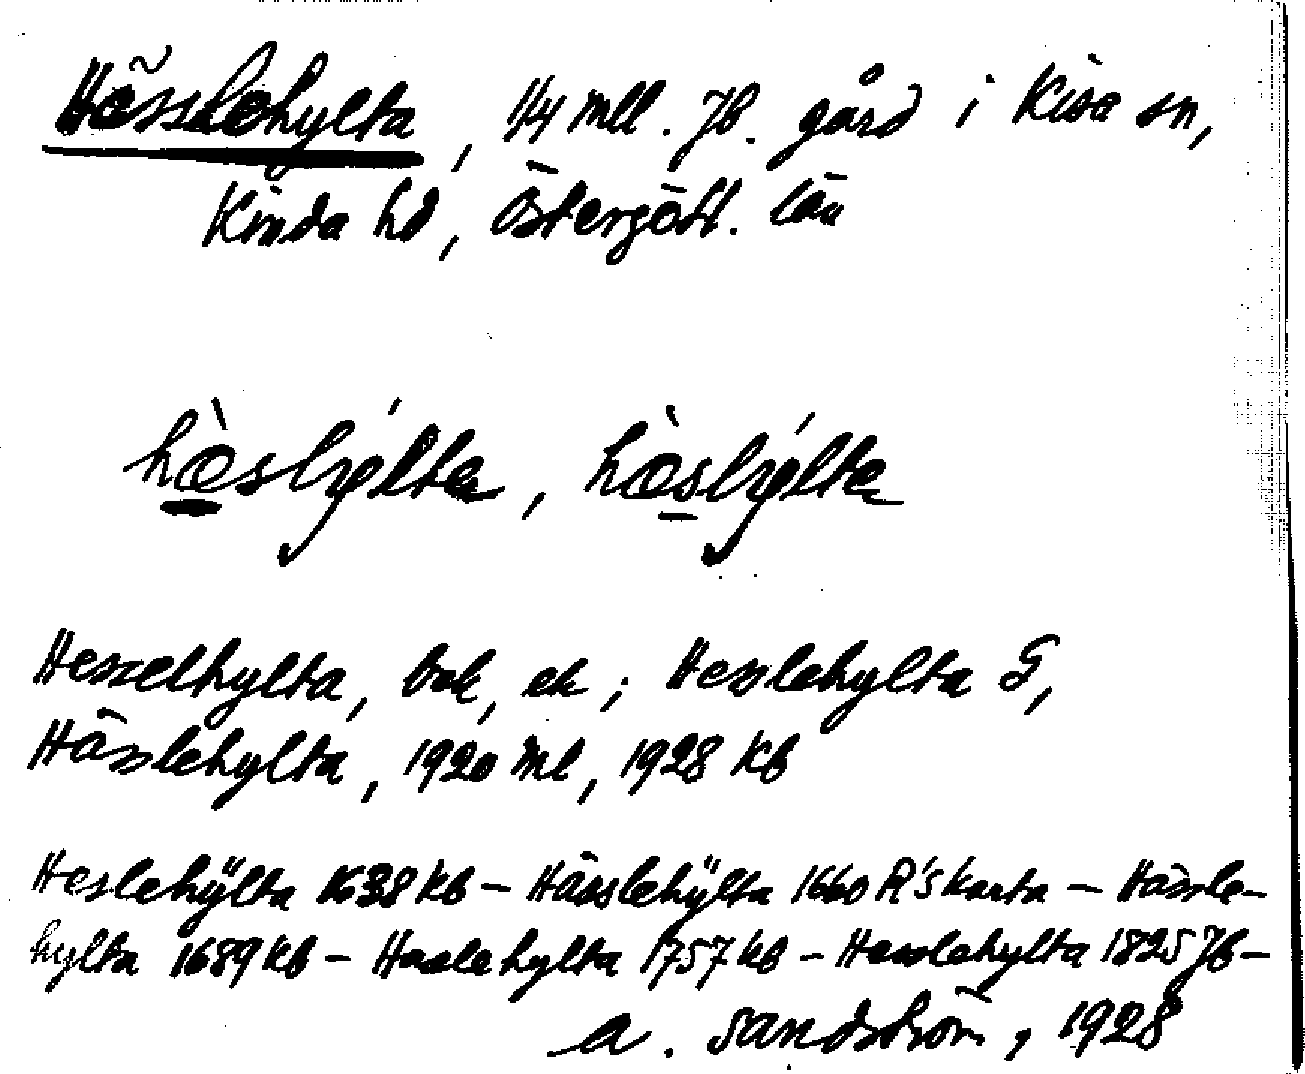 Hässlehylta, 1/4 mtl. Jb. gård i Kisa sn,
Kinda hd, Östergötl. län
hæslýlta, hæslýlta
Hesselhylta, bok, ek; Hesslehylta G,
Hässlehylta, 1920 ml, 1928 Kb
Heslehÿlta 1638 Kb – Hässlehÿlta 1660 R's karta – Hässle-
hylta 1689 Kb – Hasslehylta 1757 Kb – Hesslehylta 1825 Jb –
A. Sandström, 1928